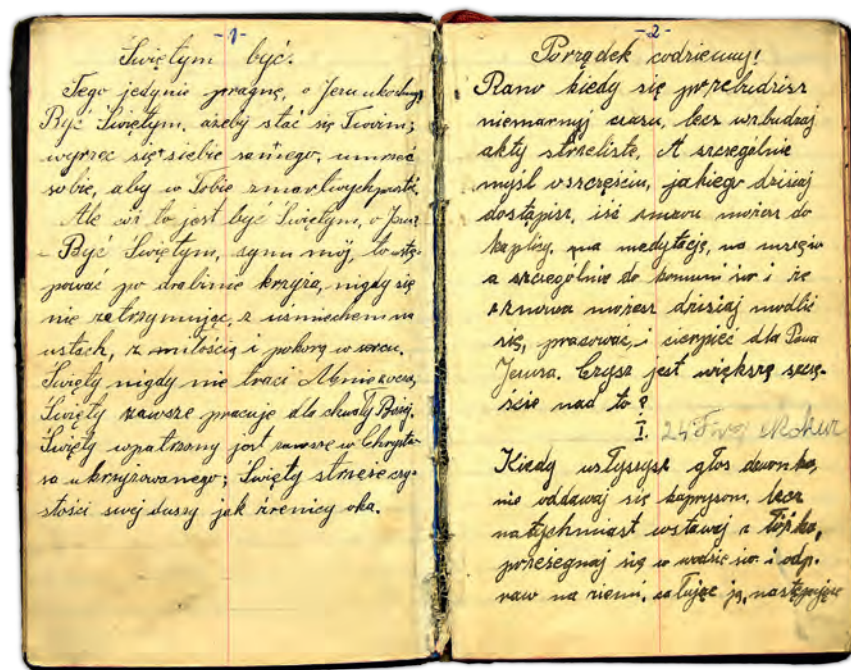 -1-
Świętym być.
Tego jedynie pragnę, o Jezu ukochany
Być Świętym, ażeby stać się Twoim;
wyrzec się siebie samego, umrzeć
sobie, aby w Tobie zmartwychpowstać.
Ale cóż to jest być Świętym, o Jezu?
- Być Świętym, synu mój, to wstę-
pować po drabinie krzyża, nigdy się
nie zatrzymując, z uśmiechem na
ustach, z miłością i pokorą w sercu.
Święty nigdy nie traci Mnie z oczu,
Święty zawsze pracuje dla chwały Bożej.
Święty wpatrzony jest zawsze w Chrystu-
sa ukrzyżowanego; Święty strzeże czy-
stości swej duszy jak źrenicy oka.
-2-
Porządek codzienny!
Rano kiedy się przebudzisz
niemarnuj czasu, lecz wzbudzaj
akty strzeliste. A szczególnie
myśl o szczęściu, jakiego dzisiaj
dostąpisz, iść znowu możesz do
kaplicy, na medytację, na mszę św
a szczególnie do komuni św i że
znowu możesz dzisiaj modlić
się, pracować, i cierpieć dla Pana
Jezusa. Czysz jest większę szczę-
ście nad to?
I. 24
Kiedy usłyszysz głos dzwonka,
nie oddawaj się kaprysom, lecz
natychmiast wstawaj z łóżka,
przeżegnaj się w wodzie św. i odp-
raw na ziemi, całując ją, następujące